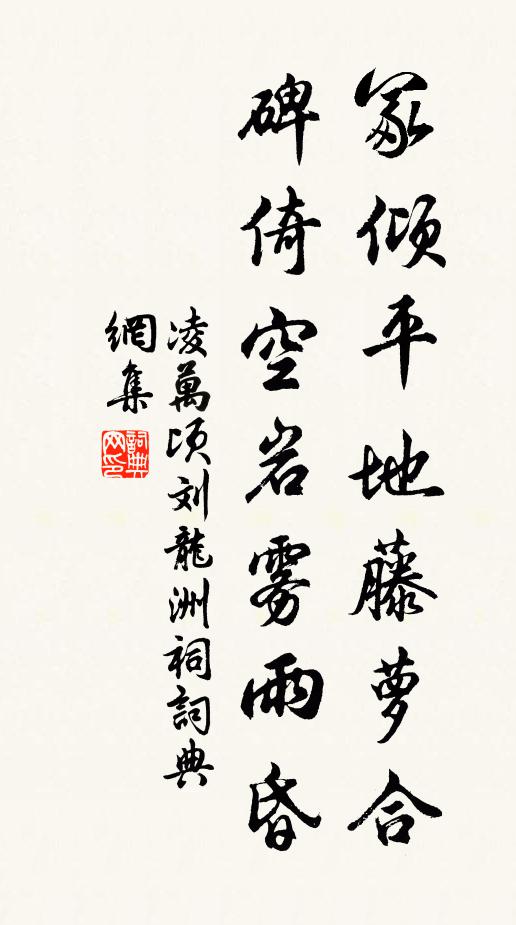 冢倾平地藤萝合
碑倚空岩雾雨昏
凌萬顷刘龍洲祠詞典
網集
詞典网印